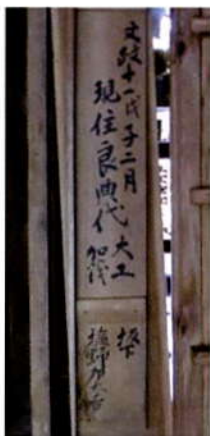 文政十一戊子二月
現住良典代大工
加茂
坂下